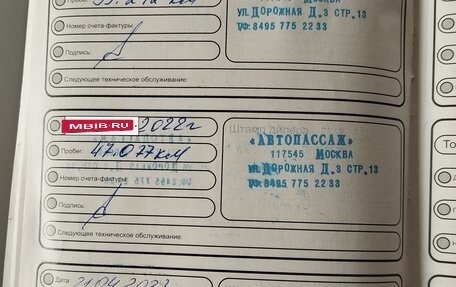 117545 МОСКВА
УЛ.ДОРОЖНАЯ Д.3 СТР.13
ТФ:8495 775 22 33
Номер счета-фактуры:
Подпись:
Следующее техническое обслуживание:
MBIB.RU 2022г
Штамп дилера
«АВТОПАССАЖ»
Пробег: 47.027км
117545 МОСКВА
УЛ.ДОРОЖНАЯ Д.3 СТР.13
Номер счета-фактуры:
ТФ:8495 775 22 33
Подпись:
Следующее техническое обслуживание:
Дата: 21.04.2023